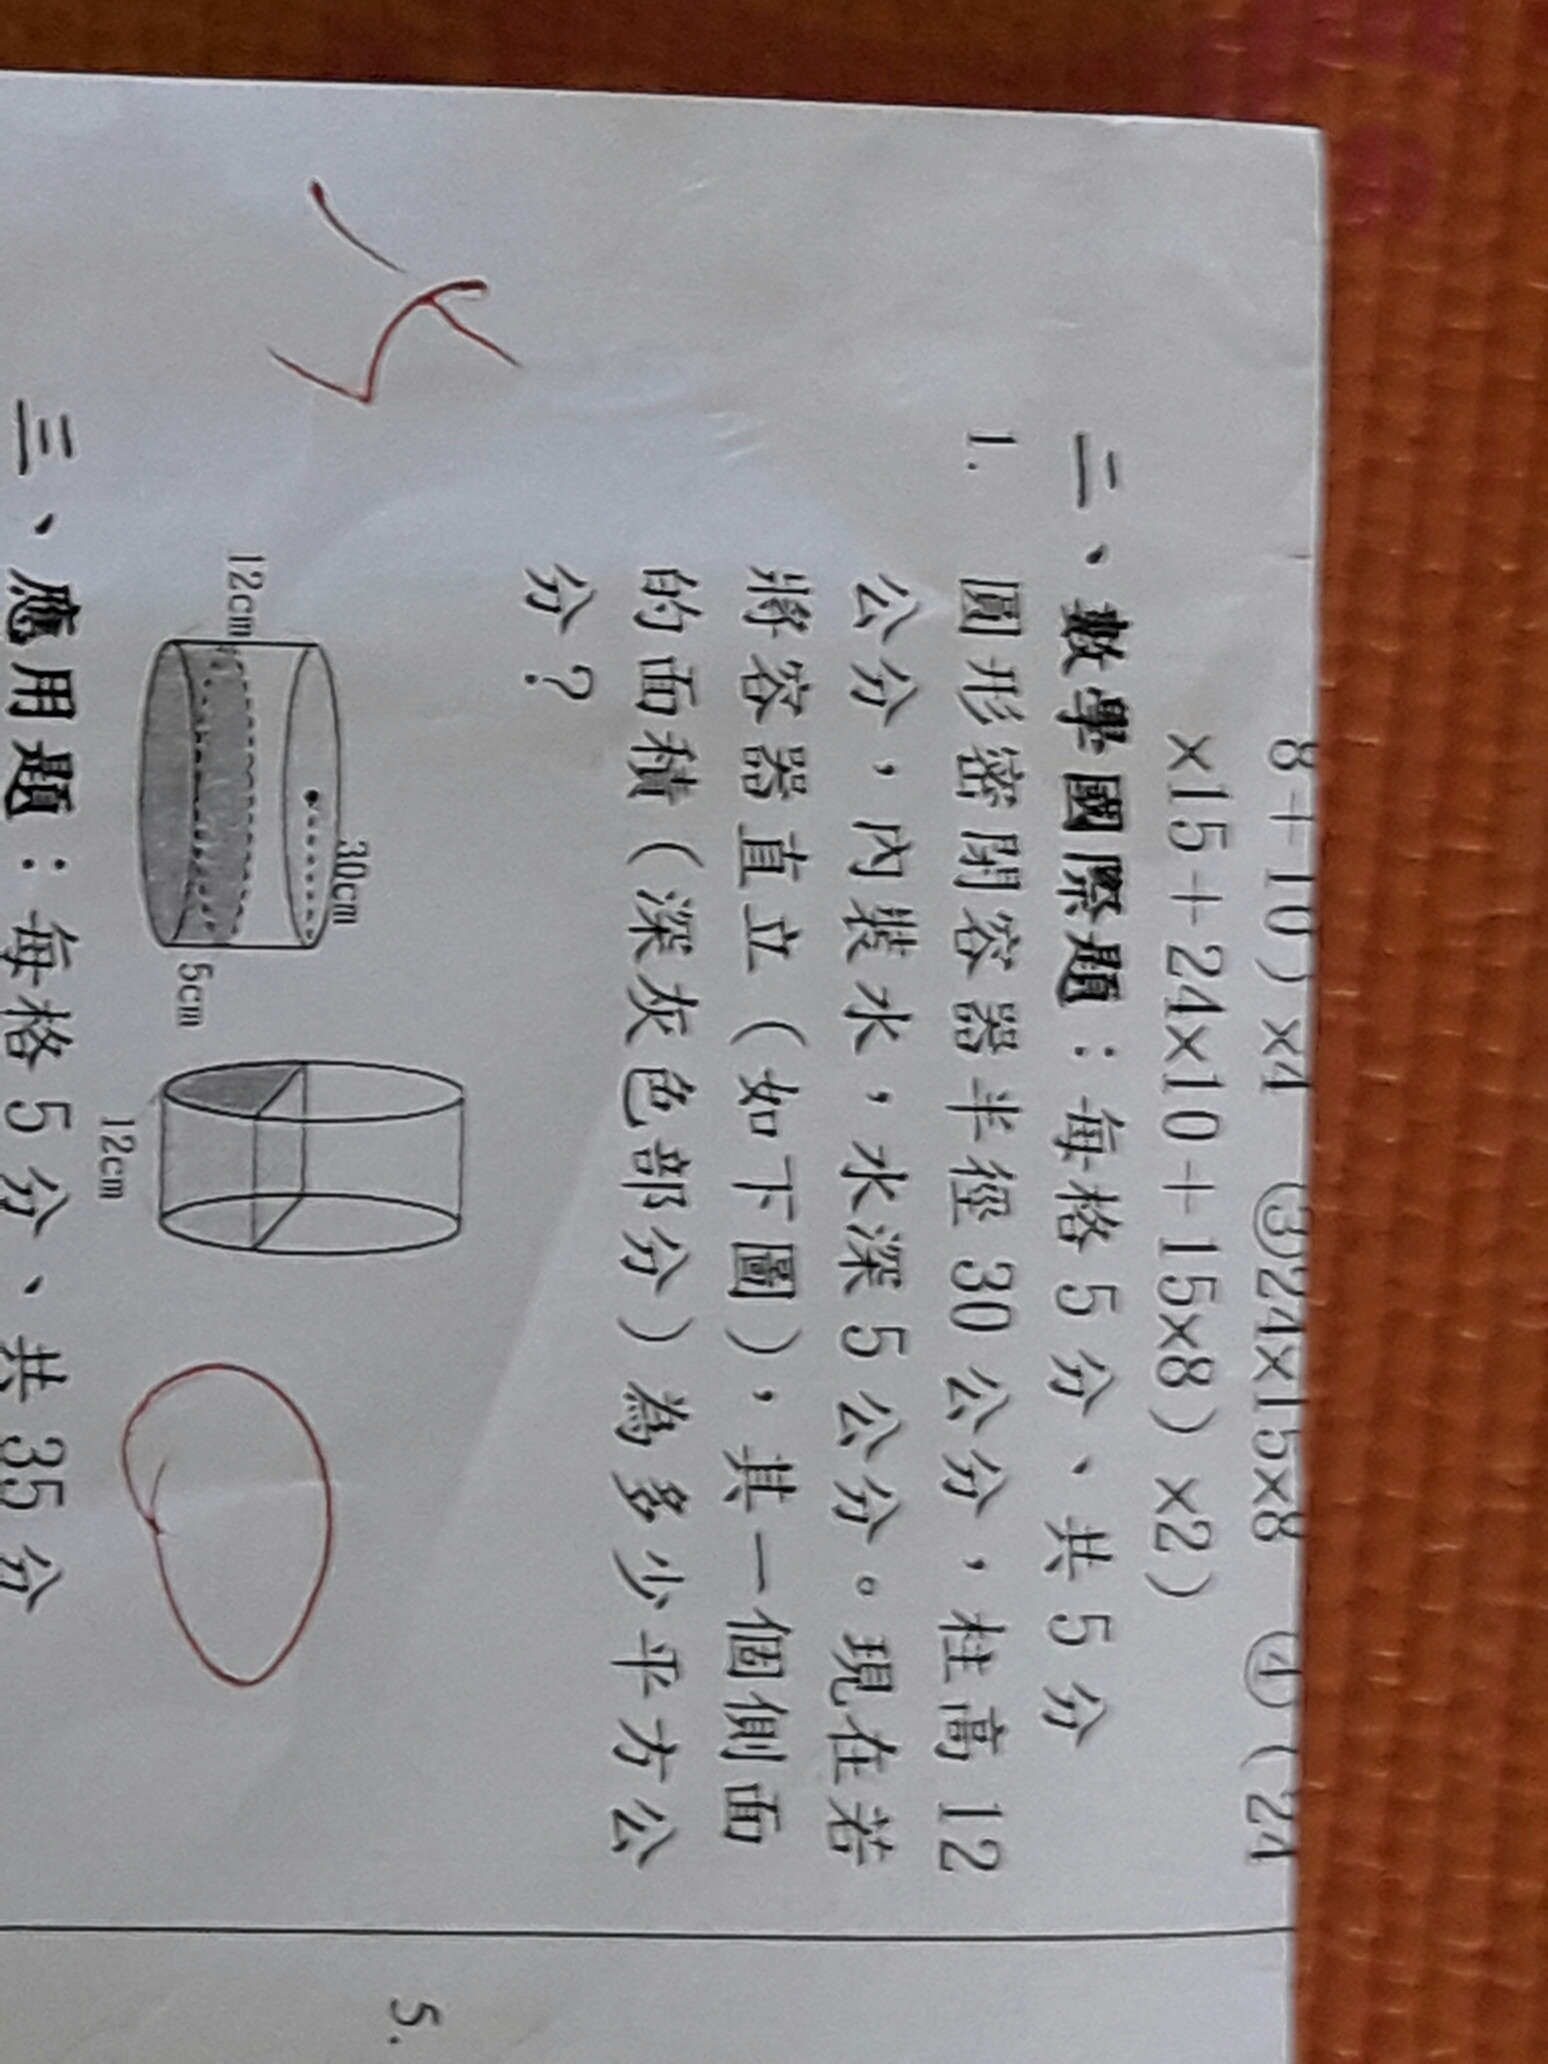 8+10)×4　③24×15×8　④(24
×15+24×10+15×8)×2)
二、數學國際題：每格5分、共5分
1.　圓形密閉容器半徑30公分，柱高12
公分，內裝水，水深5公分。現在若
將容器直立（如下圖），其一個側面
的面積（深灰色部分）為多少平方公
分？
30cm
12cm
5cm
12cm
三、應用題：每格5分、共35分
5.